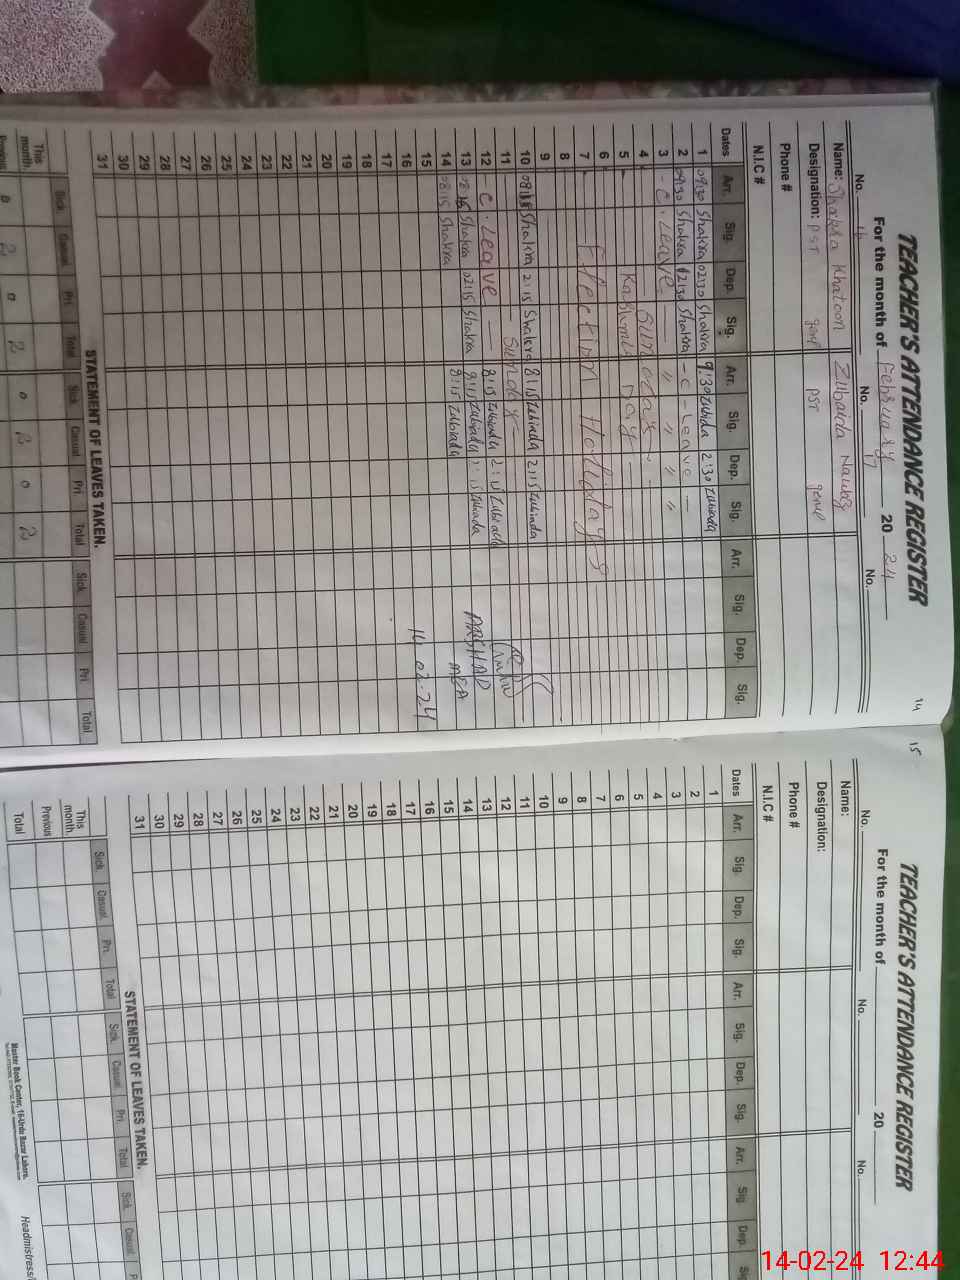 TEACHER'S ATTENDANCE REGISTER
For the month of February 20 24
No. No. 17 No.
Name: Shakra Khatoon Zubaida
Designation: PST genrl PST genrl
Phone #
N.I.C #
Dates Arr. Sig. Dep. Sig. Arr. Sig. Dep. Sig. Arr. Sig. Dep. Sig.
1 09:30 Shakra 02:30 Shakra 9:30 Zubida 2:30 Zubiada
2 09:30 Shakra 12:30 Shakra - C - Leave -
3 - C. Leave - " " " "
4 Sunday
5 Kashmir Day
6
7 Election Holidays
8
9
10 Shakra 2:15 Shakra 8:15 Zubiada 2:15 Zubiada
11 Sunday
12 - C. Leave - 8:15 Zubiada Zubiada
13 08:15 Shakra 02:15 Shakra 8:15 Zubiada Zubiada
14 08:15 Shakra 8:15 Zubiada
15
16
17
18
19
20
21
22
23
24
25
26
27
28
29
30
31
ARSHAD
MEA
14.02.24
STATEMENT OF LEAVES TAKEN.
Sick Casual Pri. Total Sick Casual Pri. Total Sick. Casual Pri. Total
This month. 0 2 0 2 0 2 0 2
Previous
14
15
TEACHER'S ATTENDANCE REGISTER
For the month of 20
No. No. No.
Name:
Designation:
Phone #
N.I.C #
Dates Arr. Sig. Dep. Sig. Arr. Sig. Dep. Sig. Arr. Sig Dep.
1
2
3
4
5
6
7
8
9
10
11
12
13
14
15
16
17
18
19
20
21
22
23
24
25
26
27
28
29
30
31
STATEMENT OF LEAVES TAKEN.
Sick. Casual Pri. Total Sick. Casual Pri. Total Sick. Casual
This month
Previous
Total
Master Book Center, 16-Urdu Bazar Lahore.
Headmistress/
14-02-24 12:44